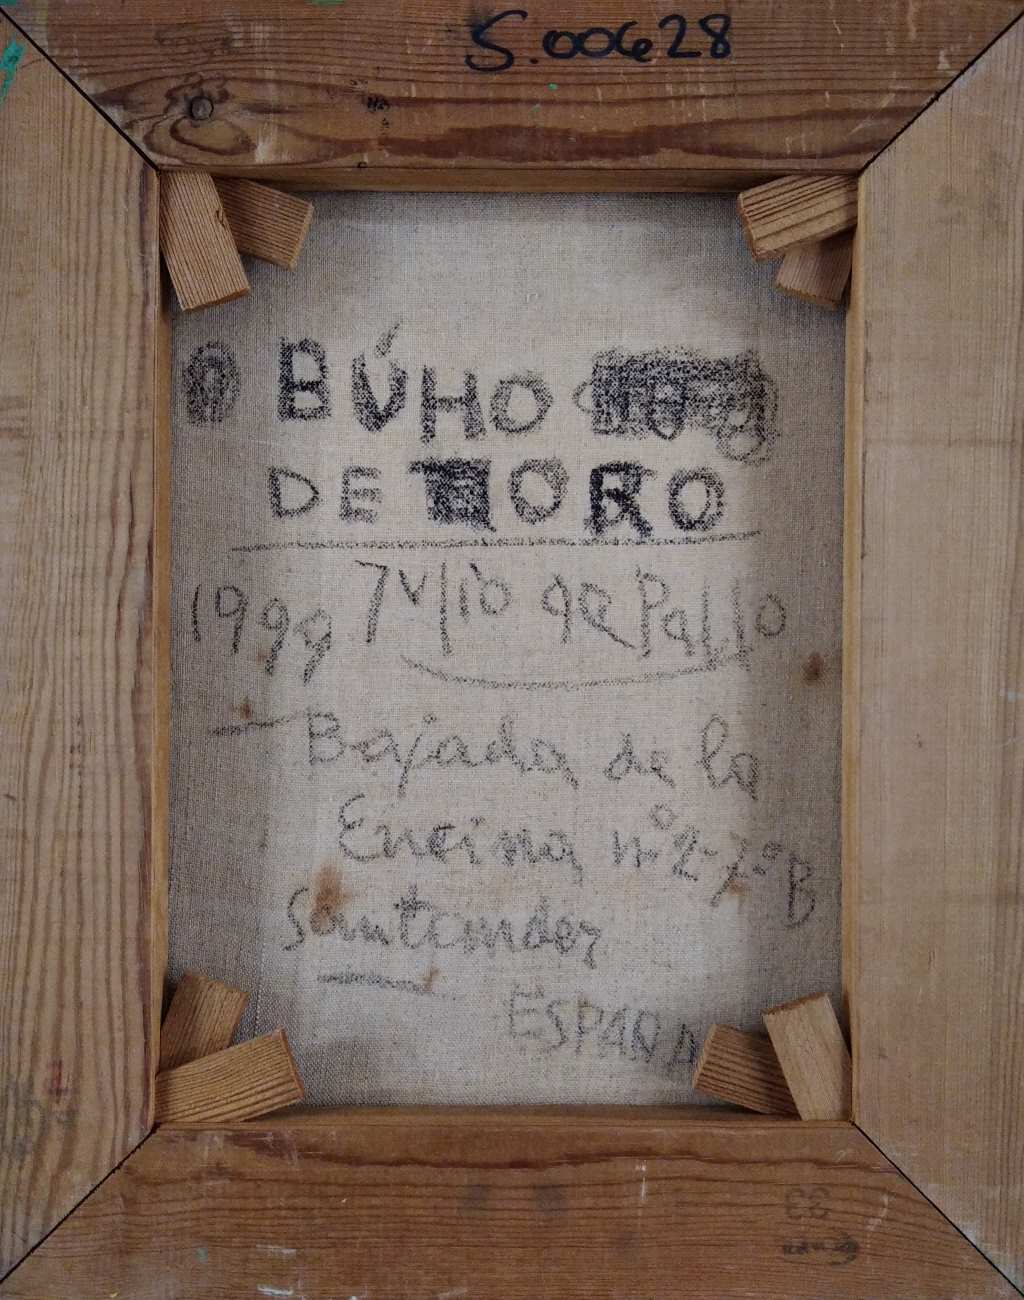 S.00628
BÚHO
DE ORO
1999 Julio de Pablo
Bajada de la
Encina nº 2-7º B
Santander
ESPAÑA
33